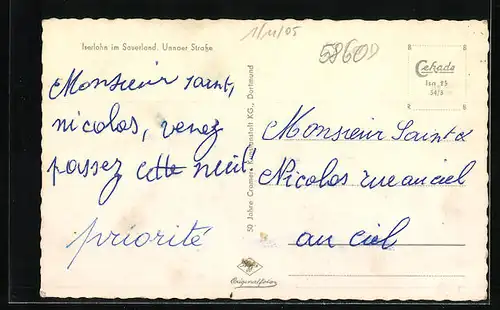 Iserlohn im Sauerland. Unnaer Straße
1/11/05
58600
Cekade
Isn 25
54/8
Monsieur saint,
nicolas, venez
passez cette nuit
priorité
50 Jahre Cramers Kunstanstalt KG., Dortmund
Monsieur Saint
Nicolas rue au ciel
au ciel
Originalfoto